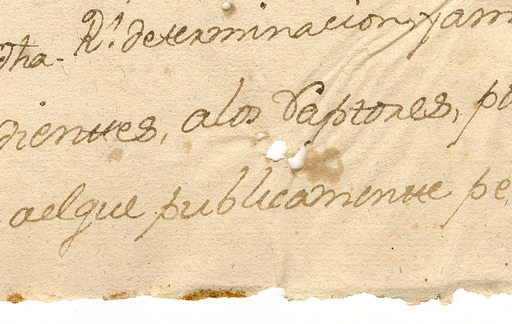 dha. Rl. determinacion, y am
dientes, a los Raptores, p
aelque publicamentte pe